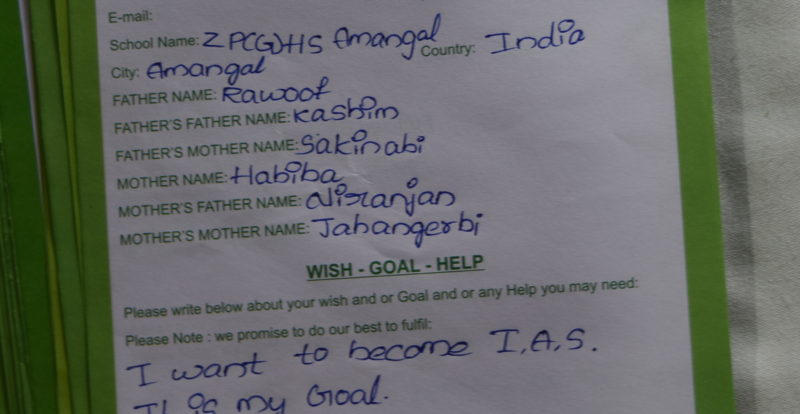 E-mail:
School Name: Z P(G)HS Amangal Country: India
City: Amangal
FATHER NAME: Rawoof
FATHER'S FATHER NAME: Kashim
FATHER'S MOTHER NAME: Sakinabi
MOTHER NAME: Habiba
MOTHER'S FATHER NAME: Niranjan
MOTHER'S MOTHER NAME: Jahangerbi
WISH - GOAL - HELP
Please write below about your wish and or Goal and or any Help you may need:
Please Note : we promise to do our best to fulfil:
I want to become I.A.S.
It is my Goal.